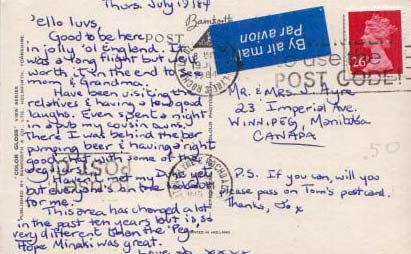 Thurs. July 19 '84
Hello luvs,
Good to be here
in jolly 'ol England. It
was a long flight but
worth, in the end to see
mom & Grandma.
Have been visiting the
relatives & having a few good
laughs. Even spent a night
in a pub my cousin owns.
There I was behind the bar
pumping beer & having a right
good chat with some of the
Haven't met my Duke yet
but everyone's on the lookout
for me.
This area has changed a lot
in the past ten years but is so
very different than the 'Peg.
Hope Minaki was great.
Love Jo xxxx
Bamforth
POST
"COLOR GLOSS" VIEW SERIES
PUBLISHED BY BAMFORTH & CO. LTD., HOLMFIRTH, YORKSHIRE.
PRINTED IN HOLLAND
By air mail
Par avion
REMEMBER
to use the
POST CODE
26P
Mr. & Mrs. J. Ayre
23 Imperial Ave.
Winnipeg, Manitoba
CANADA
.50
P.S. If you can, will you
please pass on Tom's postcard.
Thanks, Jo x